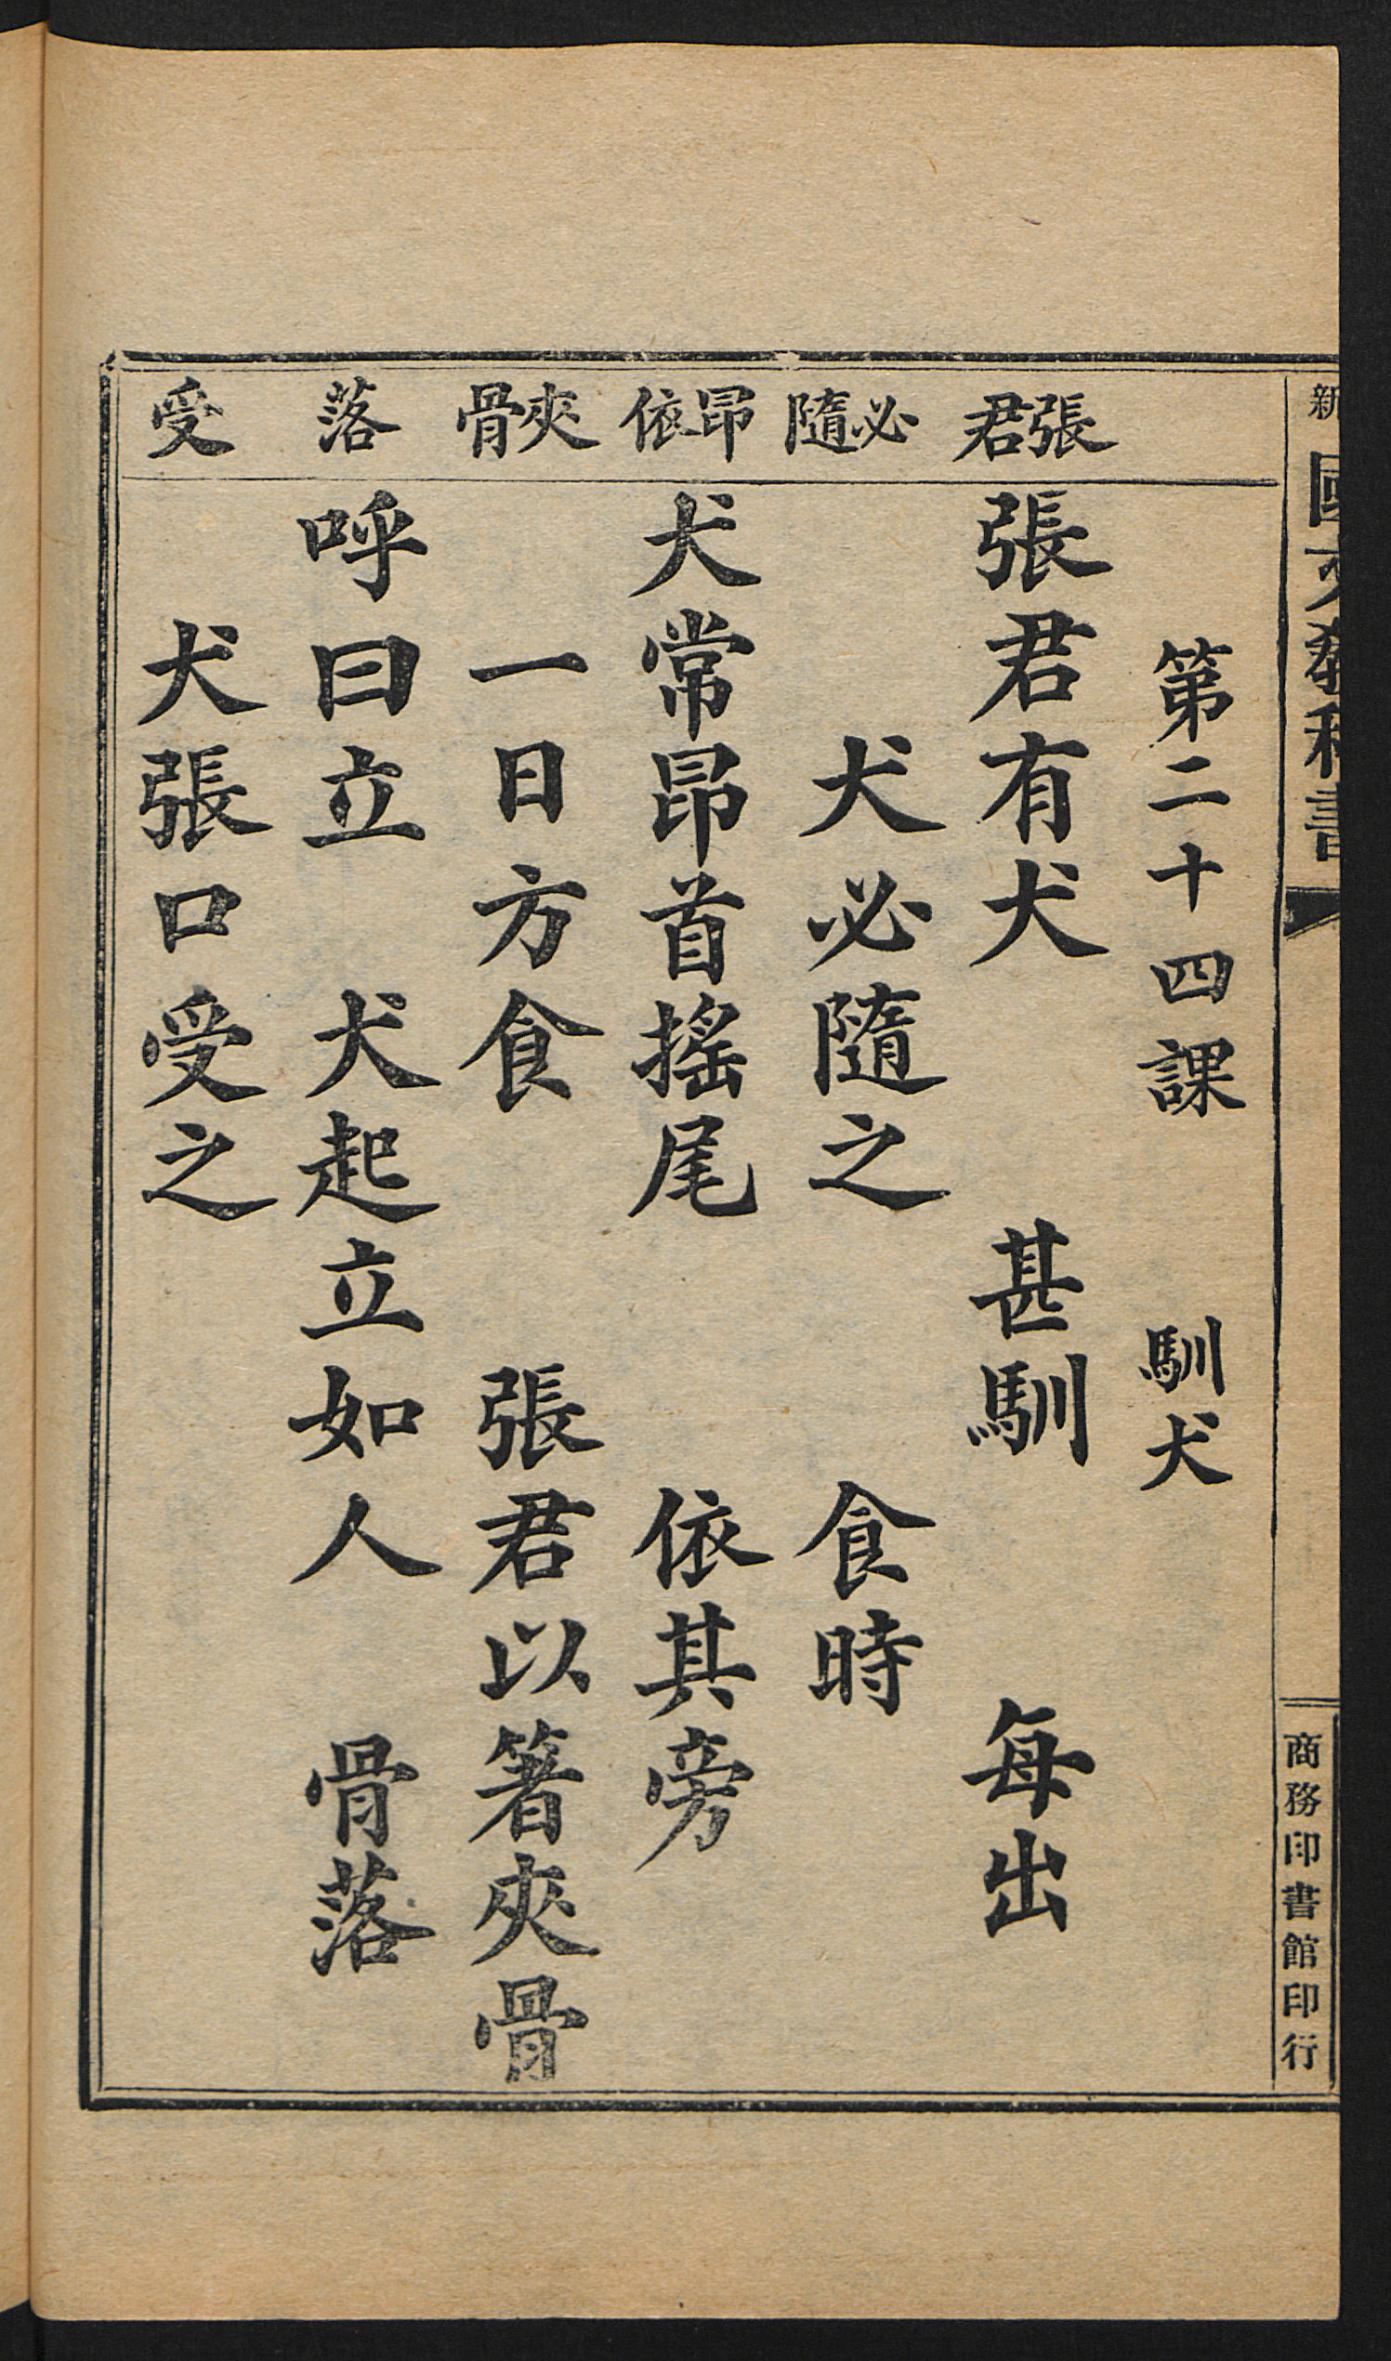 新國文教科書
商務印書館印行
第二十四課　馴犬
張君
必隨
昂依
夾骨
落
受
張君有犬　甚馴　每出
犬必隨之　食時
犬常昂首搖尾　依其旁
一日方食　張君以箸夾骨
呼曰立　犬起立如人　骨落
犬張口受之